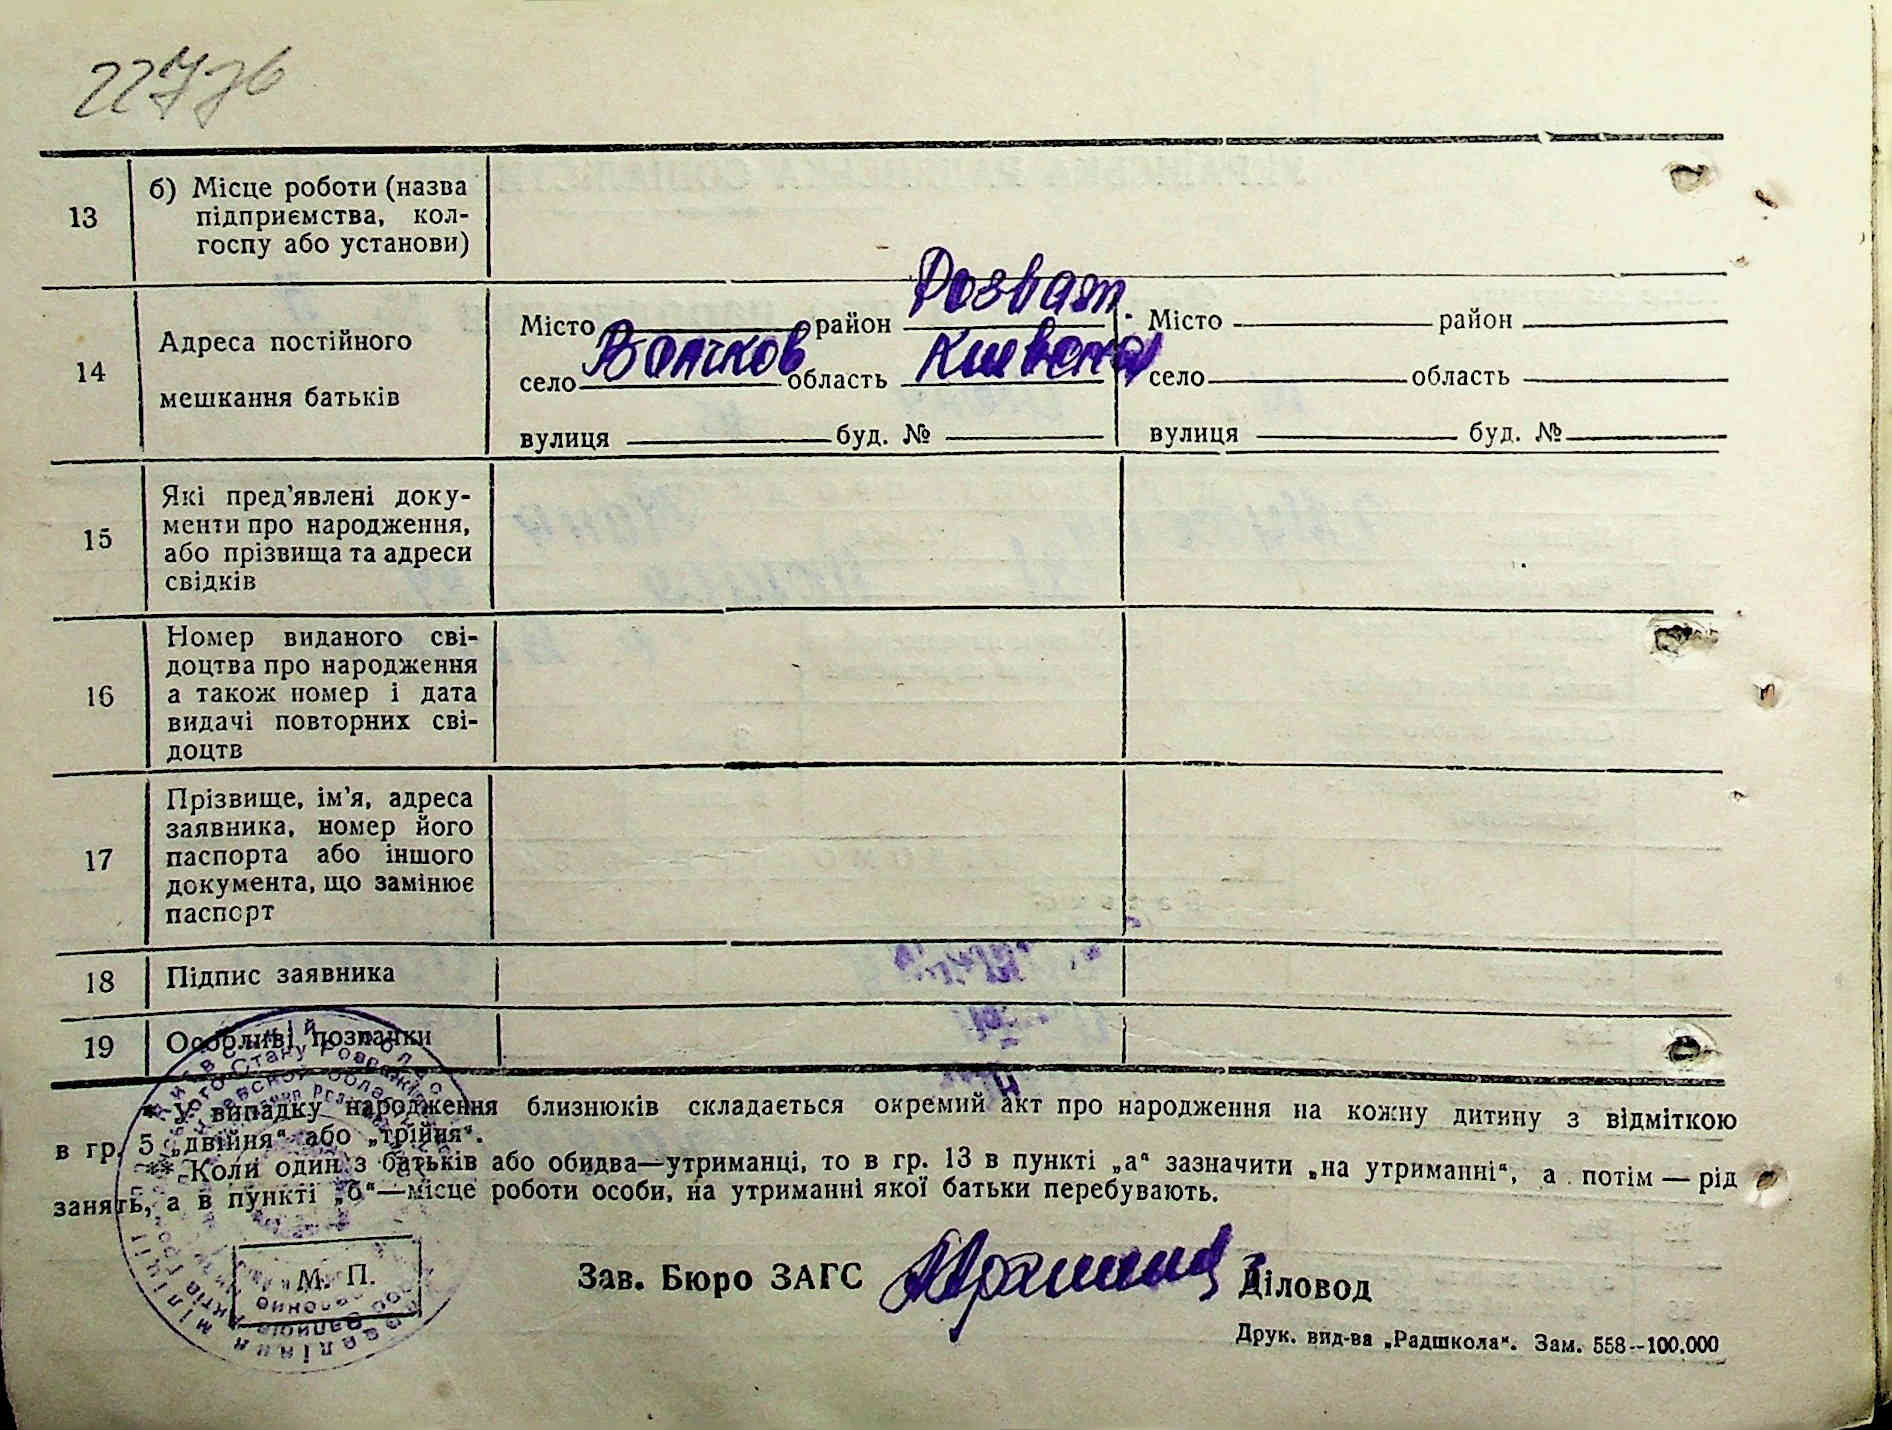 22776
13
б) Місце роботи (назва
підприємства, кол-
госпу або установи)
14
Адреса постійного
мешкання батьків
Розваж.
Місто район
Вончков Киевска
село область
вулиця буд. №
Місто район
село область
вулиця буд. №
15
Які пред'явлені доку-
менти про народження,
або прізвища та адреси
свідків
16
Номер виданого сві-
доцтва про народження
а також номер і дата
видачі повторних сві-
доцтв
17
Прізвище, ім'я, адреса
заявника, номер його
паспорта або іншого
документа, що замінює
паспорт
18
Підпис заявника
19
Особливі позначки
* У випадку народження близнюків складається окремий акт про народження на кожну дитину з відміткою
в гр. 5 „двійня“ або „трійня“.
** Коли один з батьків або обидва—утриманці, то в гр. 13 в пункті „а“ зазначити „на утриманні“, а потім — рід
занять, а в пункті „б“—місце роботи особи, на утриманні якої батьки перебувають.
М. П.
Зав. Бюро ЗАГС Діловод
Друк. вид-ва „Радшкола“. Зам. 558--100.000